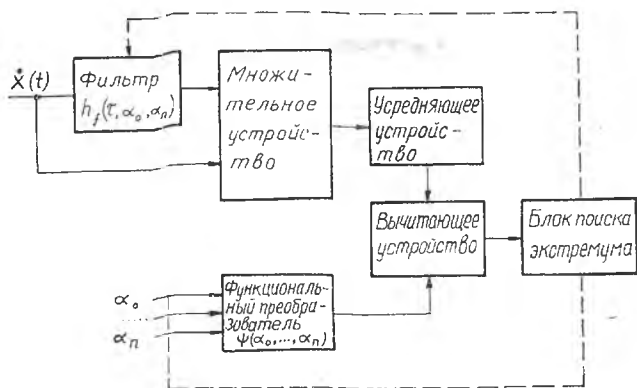 Ẋ(t)
Фильтр
h_f(τ, α₀, αₙ)
Множи-
тельное
устройс-
тво
Усредняющее
устройс-
тво
Вычитающее
устройство
Блок поиска
экстремума
α₀
......
αₙ
Функциональ-
ный преобра-
зиватель
Ψ(α₀,...,αₙ)